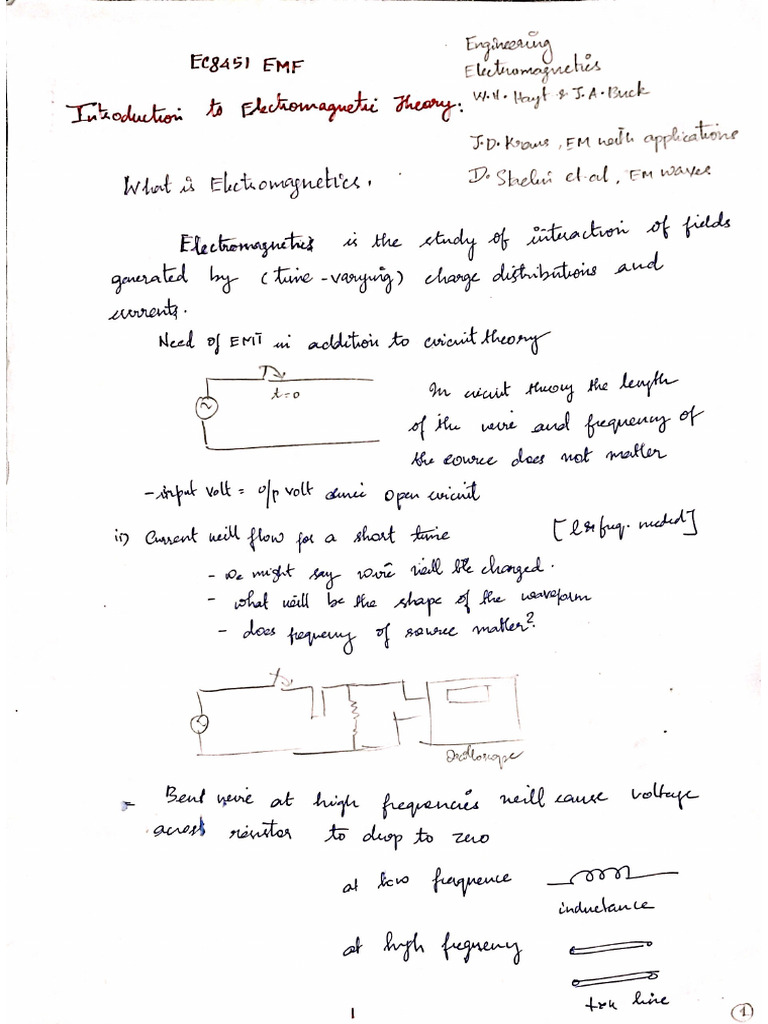 EC8451 EMF
Engineering
Electromagnetics
W.H. Hayt & J.A. Buck
Introduction to Electromagnetic Theory.
J.D. Kraus, EM with applications
D. Staelin et-al, EM waves
What is Electromagnetics.
Electromagnetics is the study of interaction of fields
generated by (time-varying) charge distributions and
currents.
Need of EMT in addition to circuit theory
t=0
In circuit theory the length
of the wire and frequency of
the source does not matter
- input volt = o/p volt since open circuit
ii) Current will flow for a short time
[l & freq. needed]
- we might say wire will be charged.
- what will be the shape of the waveform
- does frequency of source matter?
Oscilloscope
- Bent wire at high frequencies will cause voltage
across resistor to drop to zero
at low frequence
inductance
at high frequency
txn line
1
1